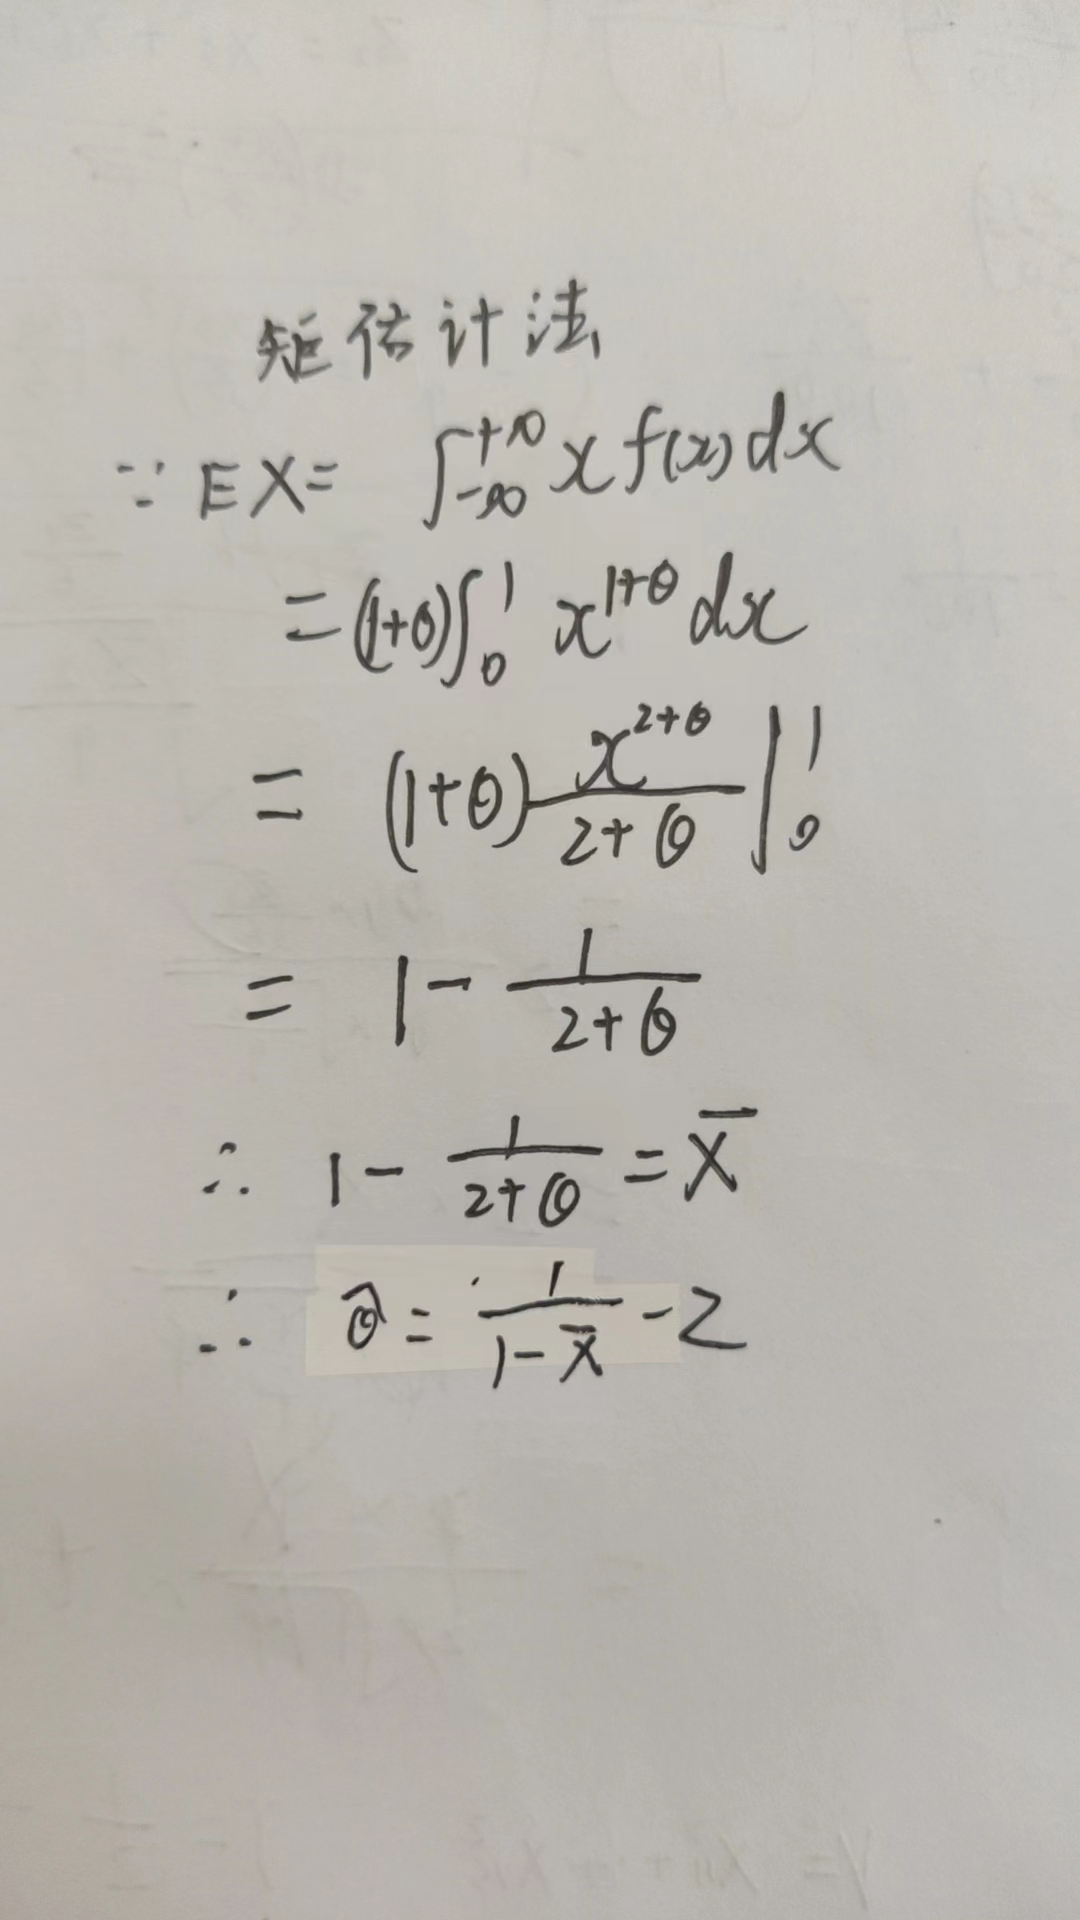 矩估计法
∵ EX= ∫_{-∞}^{+∞} x f(x) dx
= (1+θ)∫_0^1 x^{1+θ} dx
= (1+θ) \frac{x^{2+θ}}{2+θ} |_0^1
= 1 - \frac{1}{2+θ}
∴ 1 - \frac{1}{2+θ} = \overline{X}
∴ \hat{θ} = \frac{1}{1-\overline{X}} - 2